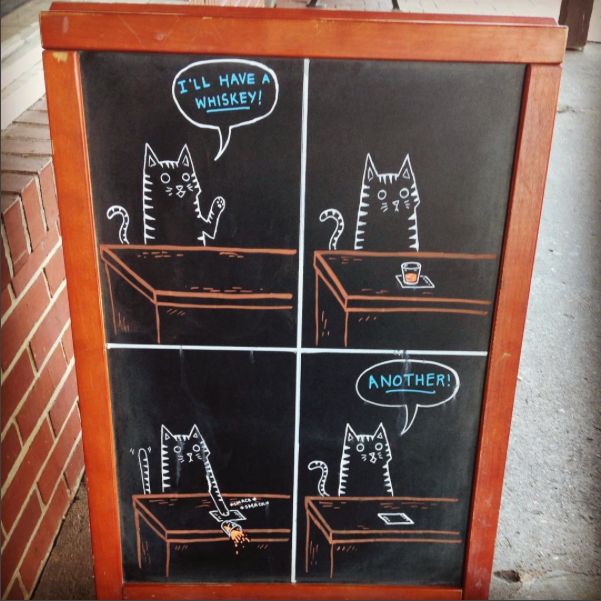 I'LL HAVE A
WHISKEY!
*SMACK*
*SMACK*
ANOTHER!